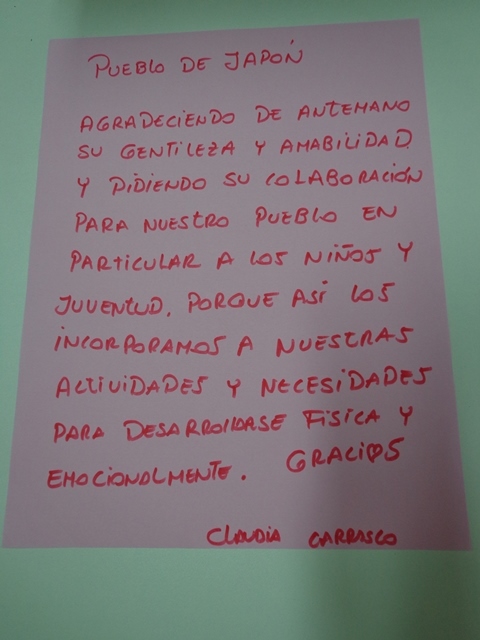 PUEBLO DE JAPÓN
AGRADECIENDO DE ANTEMANO
SU GENTILEZA Y AMABILIDAD
Y PIDIENDO SU COLABORACIÓN
PARA NUESTRO PUEBLO EN
PARTICULAR A LOS NIÑOS Y
JUVENTUD, PORQUE ASÍ LOS
INCORPORAMOS A NUESTRAS
ACTIVIDADES Y NECESIDADES
PARA DESARROLLARSE FISICA Y
EMOCIONALMENTE. GRACIAS
CLAUDIA CARRASCO